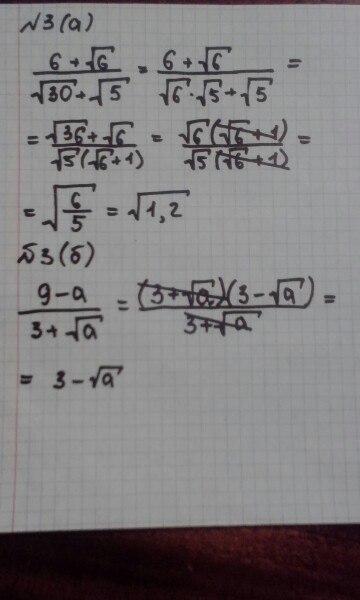 №3(а)
(6 + √6)/(√30 + √5) = (6 + √6)/(√6 · √5 + √5) =
= (√36 + √6)/(√5(√6 + 1)) = (√6(√6 + 1))/(√5(√6 + 1)) =
= √(6/5) = √1,2
№3(б)
(9 − a)/(3 + √a) = ((3 + √a)(3 − √a))/(3 + √a) =
= 3 − √a